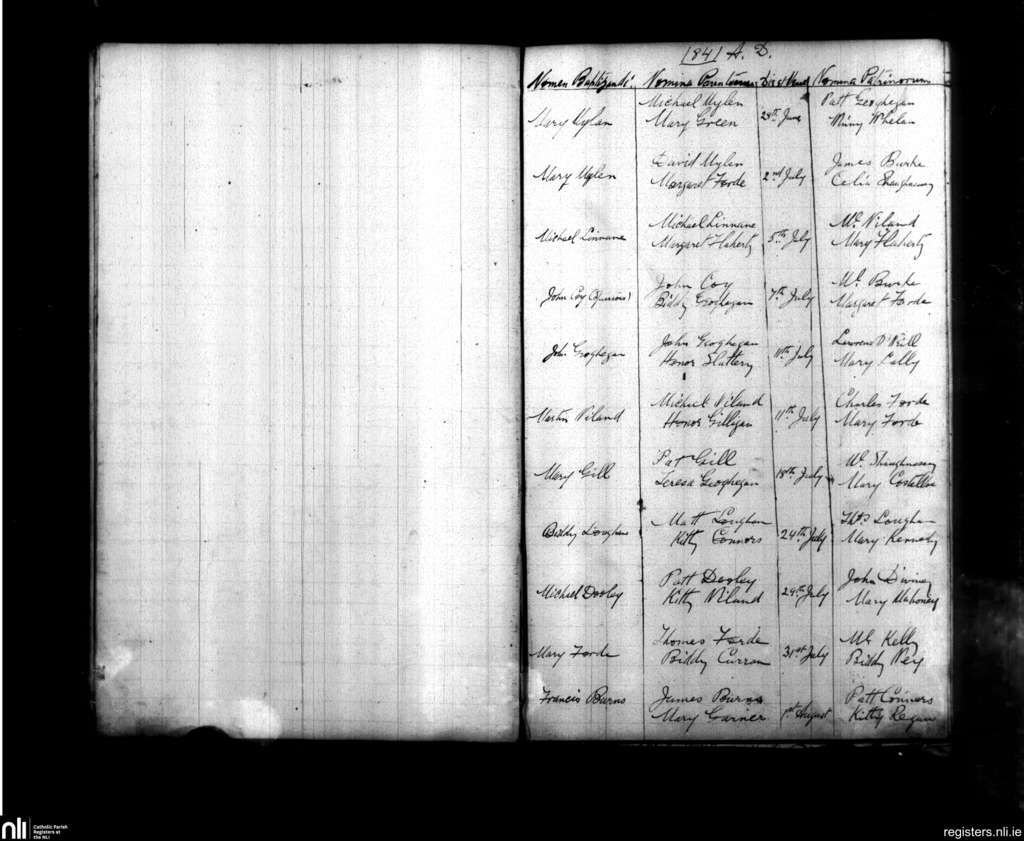 1841 A. D.
Nomen Baptizandi Nomina Parentum Die et Mens Nomina Patrinorum
Michael Nylen Patt Geoghegan
Mary Nylan Mary Green 29th June Winny Whelan
David Nylen James Burke
Mary Nylen Margaret Forde 2nd July Celia Shaughnessy
Michael Linnane Ml Niland
Michael Linnane Margaret Flaherty 5th July Mary Flaherty
John Coy Ml Burke
John Coy (Spurious) Biddy Geoghegan 7th July Margaret Forde
John Geoghegan Lawrence O'Neill
John Geoghegan Honor Slattery 11th July Mary Cally
Michael Niland Charles Forde
Martin Niland Honor Gilligan 11th July Mary Forde
Pat Gill Wm Shaughnessy
Mary Gill Teresa Geoghegan 18th July Mary Costelloe
Matt Loughan Thos Loughan
Biddy Kitty Connors 24th July Mary Kennedy
Patt Dooley John Diviney
Michael Dooley Kitty Niland 29th July Mary Mahoney
Thomas Forde Ml Kelly
Mary Forde Biddy Curran 31st July Biddy Ney
Francis Burns James Burns Patt Connors
Mary Garner 1st August Kitty Regan
nli
Catholic Parish
Registers at
the NLI
registers.nli.ie